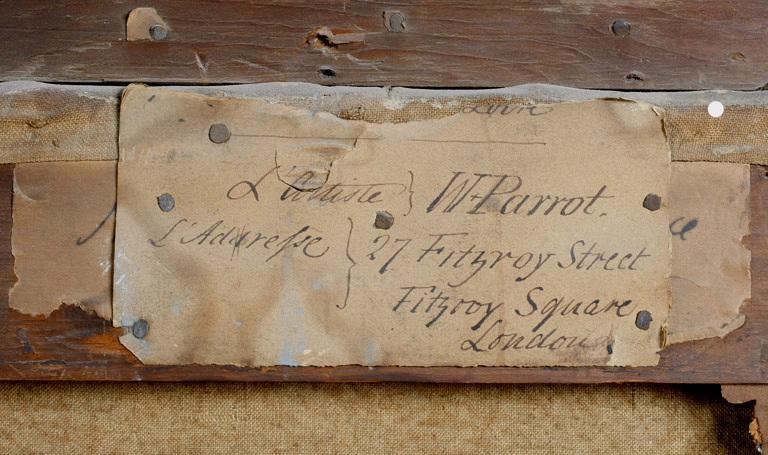 L'Artiste } Wm Parrot.
L'Adresse } 27 Fitzroy Street
Fitzroy Square
London